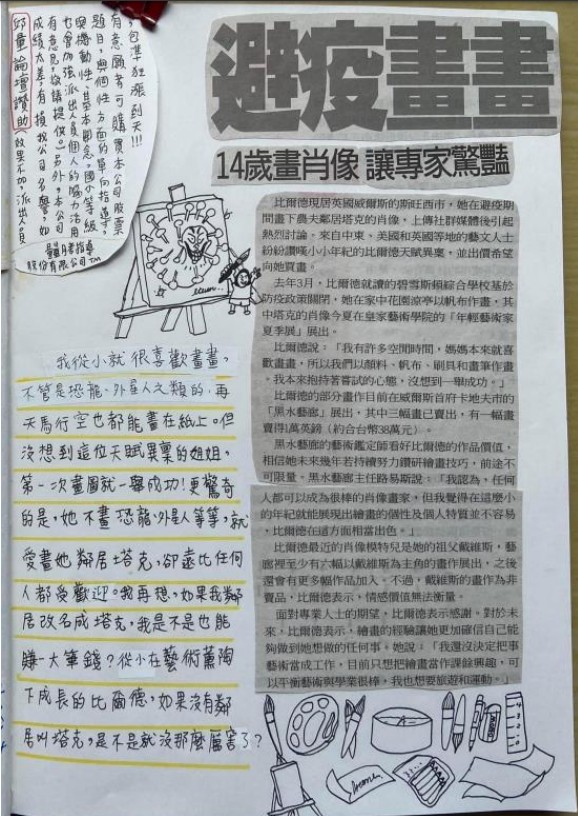 避疫畫畫
14歲畫肖像 讓專家驚豔
比爾德現居英國威爾斯的斯旺西市，她在避疫期
間畫下農夫鄰居塔克的肖像，上傳社群媒體後引起
熱烈討論，來自中東、美國和英國等地的藝文人士
紛紛讚嘆小小年紀的比爾德天賦異稟，並出價希望
向她買畫。
去年3月，比爾德就讀的碧雪斯頓綜合學校基於
防疫政策關閉，她在家中花園涼亭以帆布作畫，其
中塔克的肖像今夏在皇家藝術學院的「年輕藝術家
夏季展」展出。
比爾德說：「我有許多空閒時間，媽媽本來就喜
歡畫畫，所以我們以顏料、帆布、刷具和畫筆作畫
，我本來抱持著嘗試的心態，沒想到一舉成功。」
比爾德的部分畫作目前在威爾斯首府卡地夫市的
「黑水藝廊」展出，其中三幅畫已賣出，有一幅畫
賣得1萬英鎊（約合台幣38萬元）。
黑水藝廊的藝術鑑定師看好比爾德的作品價值，
相信她未來幾年若持續努力鑽研繪畫技巧，前途不
可限量。黑水藝廊主任路易斯說：「我認為，任何
人都可以成為很棒的肖像畫家，但我覺得在這麼小
的年紀就能展現出繪畫的個性及個人特質並不容易
，比爾德在這方面相當出色。」
比爾德最近的肖像模特兒是她的祖父戴維斯，藝
廊裡至少有六幅以戴維斯為主角的畫作展出，之後
還會有更多幅作品加入。不過，戴維斯的畫作為非
賣品，比爾德表示，情感價值無法衡量。
面對專業人士的期望，比爾德表示感謝。對於未
來，比爾德表示，繪畫的經驗讓她更加確信自己能
夠做到她想做的任何事。她說：「我還沒決定把事
藝術當成工作，目前只想把繪畫當作課餘興趣，可
以平衡藝術與學業很棒，我也想要旅遊和運動。」
，包準狂漲到天!!!
有意願者可購買本公司股票
題目，與個性方面的單向指導，
與機動性、基本觀念、國小等級
也會加強派出人員個人的腦力活用
有意見，敬請提供。另外，本公司
成績太差，有損我公司名譽，如
邱量論壇讚助（效果不加，派出人員
股份有限公司TM
我從小就很喜歡畫畫，
不管是恐龍、外星人之類的，再
天馬行空也都能畫在紙上。但
沒想到這位天賦異稟的姐姐，
第一次畫圖就一舉成功！更驚奇
的是，她不畫恐龍、外星人等等，就
愛畫她鄰居塔克，卻遠比任何
人都受歡迎。我再想，如果我鄰
居改名成塔克，我是不是也能
賺一大筆錢？從小在藝術薰陶
下成長的比爾德，如果沒有鄰
居叫塔克，是不是就沒那麼厲害了？